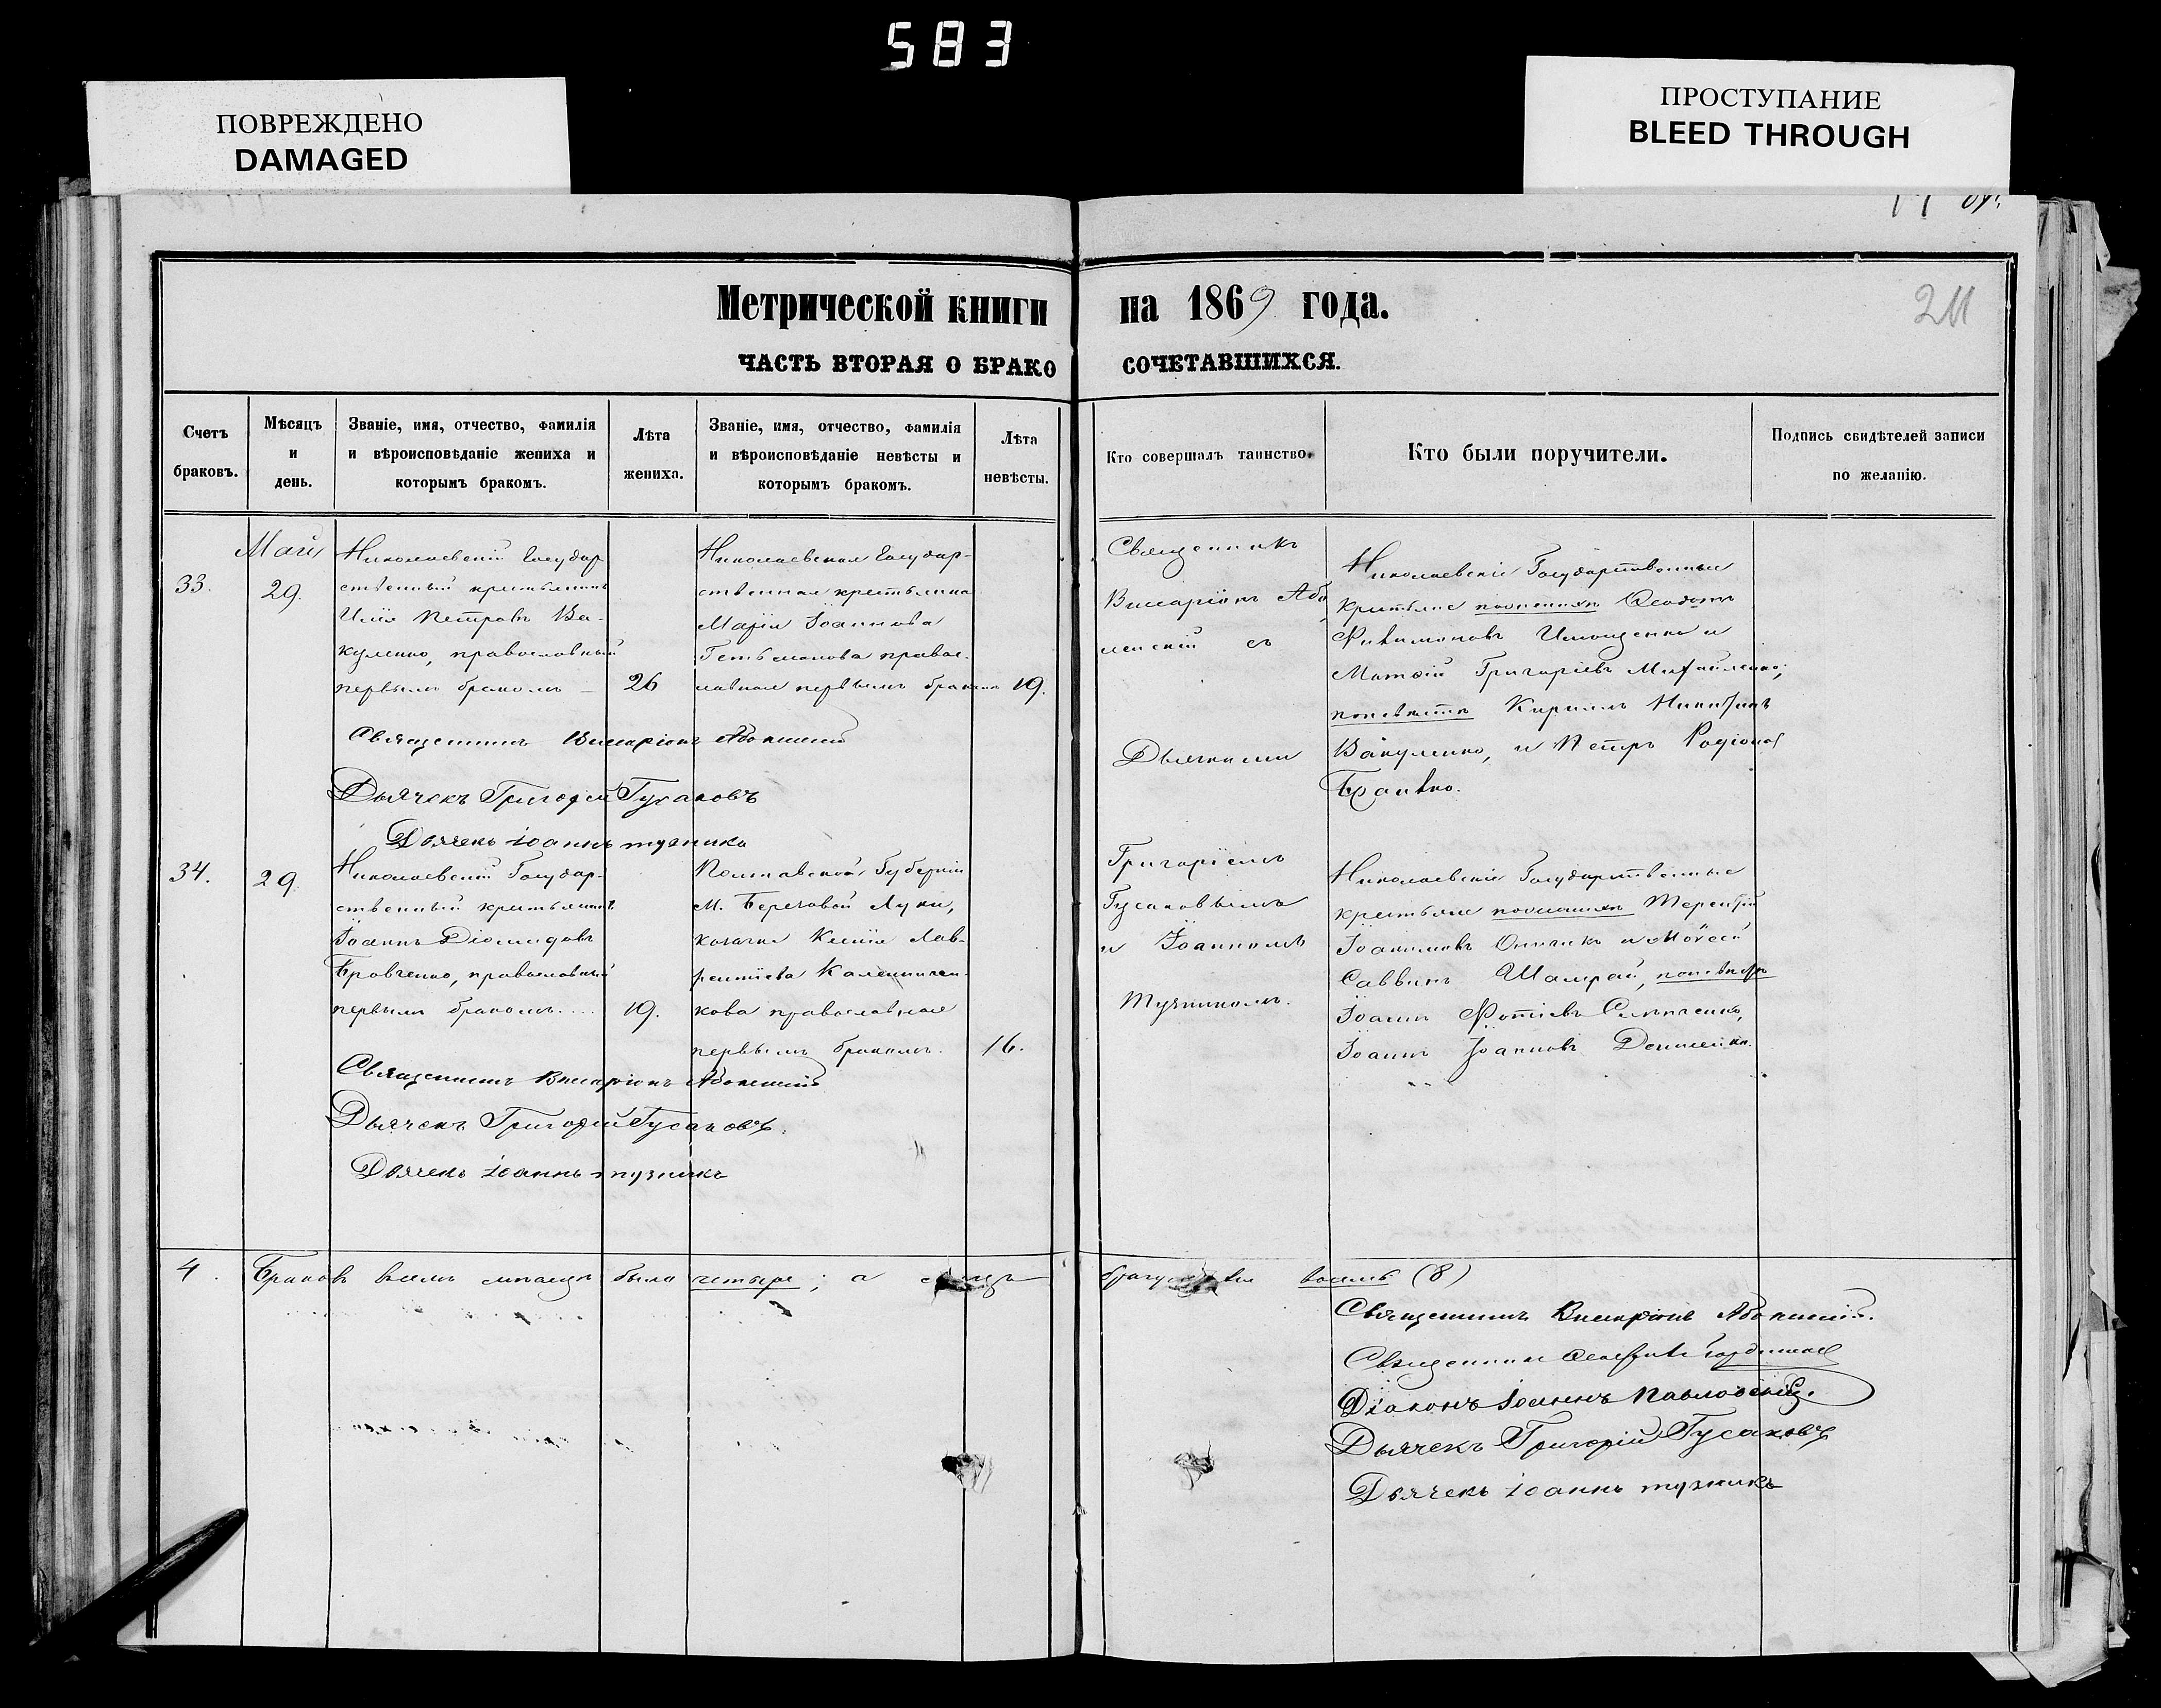 583
ПОВРЕЖДЕНО
DAMAGED
ПРОСТУПАНИЕ
BLEED THROUGH
Метрической книги на 1869 года.
211
ЧАСТЬ ВТОРАЯ О БРАКОСОЧЕТАВШИХСЯ.
Счетъ браковъ.
Мѣсяцъ и день.
Званіе, имя, отчество, фамилія
и вѣроисповѣданіе жениха и
которымъ бракомъ.
Лѣта жениха.
Званіе, имя, отчество, фамилія
и вѣроисповѣданіе невѣсты и
которымъ бракомъ.
Лѣта невѣсты.
Кто совершалъ таинство.
Кто были поручители.
Подпись свидѣтелей записи
по желанію.
33.
Май
29.
Николаевскій Государ-
ственный крестьянинъ
Илія Петровъ Ва-
куленко, православный
первымъ бракомъ
26
Николаевская Государ-
ственная крестьянка
Марія Іоаннова
Гетьманова правос-
лавная первымъ бракомъ
19.
Священникъ Виссаріонъ
Дьячекъ Григорій Гусаковъ
Дьячекъ іоаннъ тузникъ
Священникъ
Виссаріонъ
съ
Дьячками
Григоріемъ
Гусаковымъ
и Іоанномъ
Тузникомъ.
Николаевскіе Государственные
крестьяне по женихѣ Ѳеодотъ
Филимоновъ Имощенко и
Матѳій Григоріевъ Михайленко;
по невѣстѣ Кириллъ
Вакуленко, и Петръ Родіоновъ
34.
29
Николаевскій Государ-
ственный крестьянинъ
Іоаннъ Діомидовъ
Бровченко, православный
первымъ бракомъ....
19.
Полтавской Губерніи
М. Береговой Луки,
козачка Ксенія Лав-
рентіева
кова православная
первымъ бракомъ.
16.
Священникъ Виссаріонъ
Дьячекъ Григорій Гусаковъ.
Дьячекъ іоаннъ тузникъ
Николаевскіе Государственные
крестьяне по женихѣ Терентій
Іоакимовъ и Моѵсей
Саввинъ Шамрай, по невѣстѣ
Іоаннъ Фотіевъ
Іоаннъ Іоанновъ
4.
Браковъ всѣхъ было четыре; а
восемь (8)
Священникъ Виссаріонъ
Священникъ
Діаконъ Іоаннъ Павловскій.
Дьячекъ Григорій Гусаковъ
Дьячекъ іоаннъ тузникъ